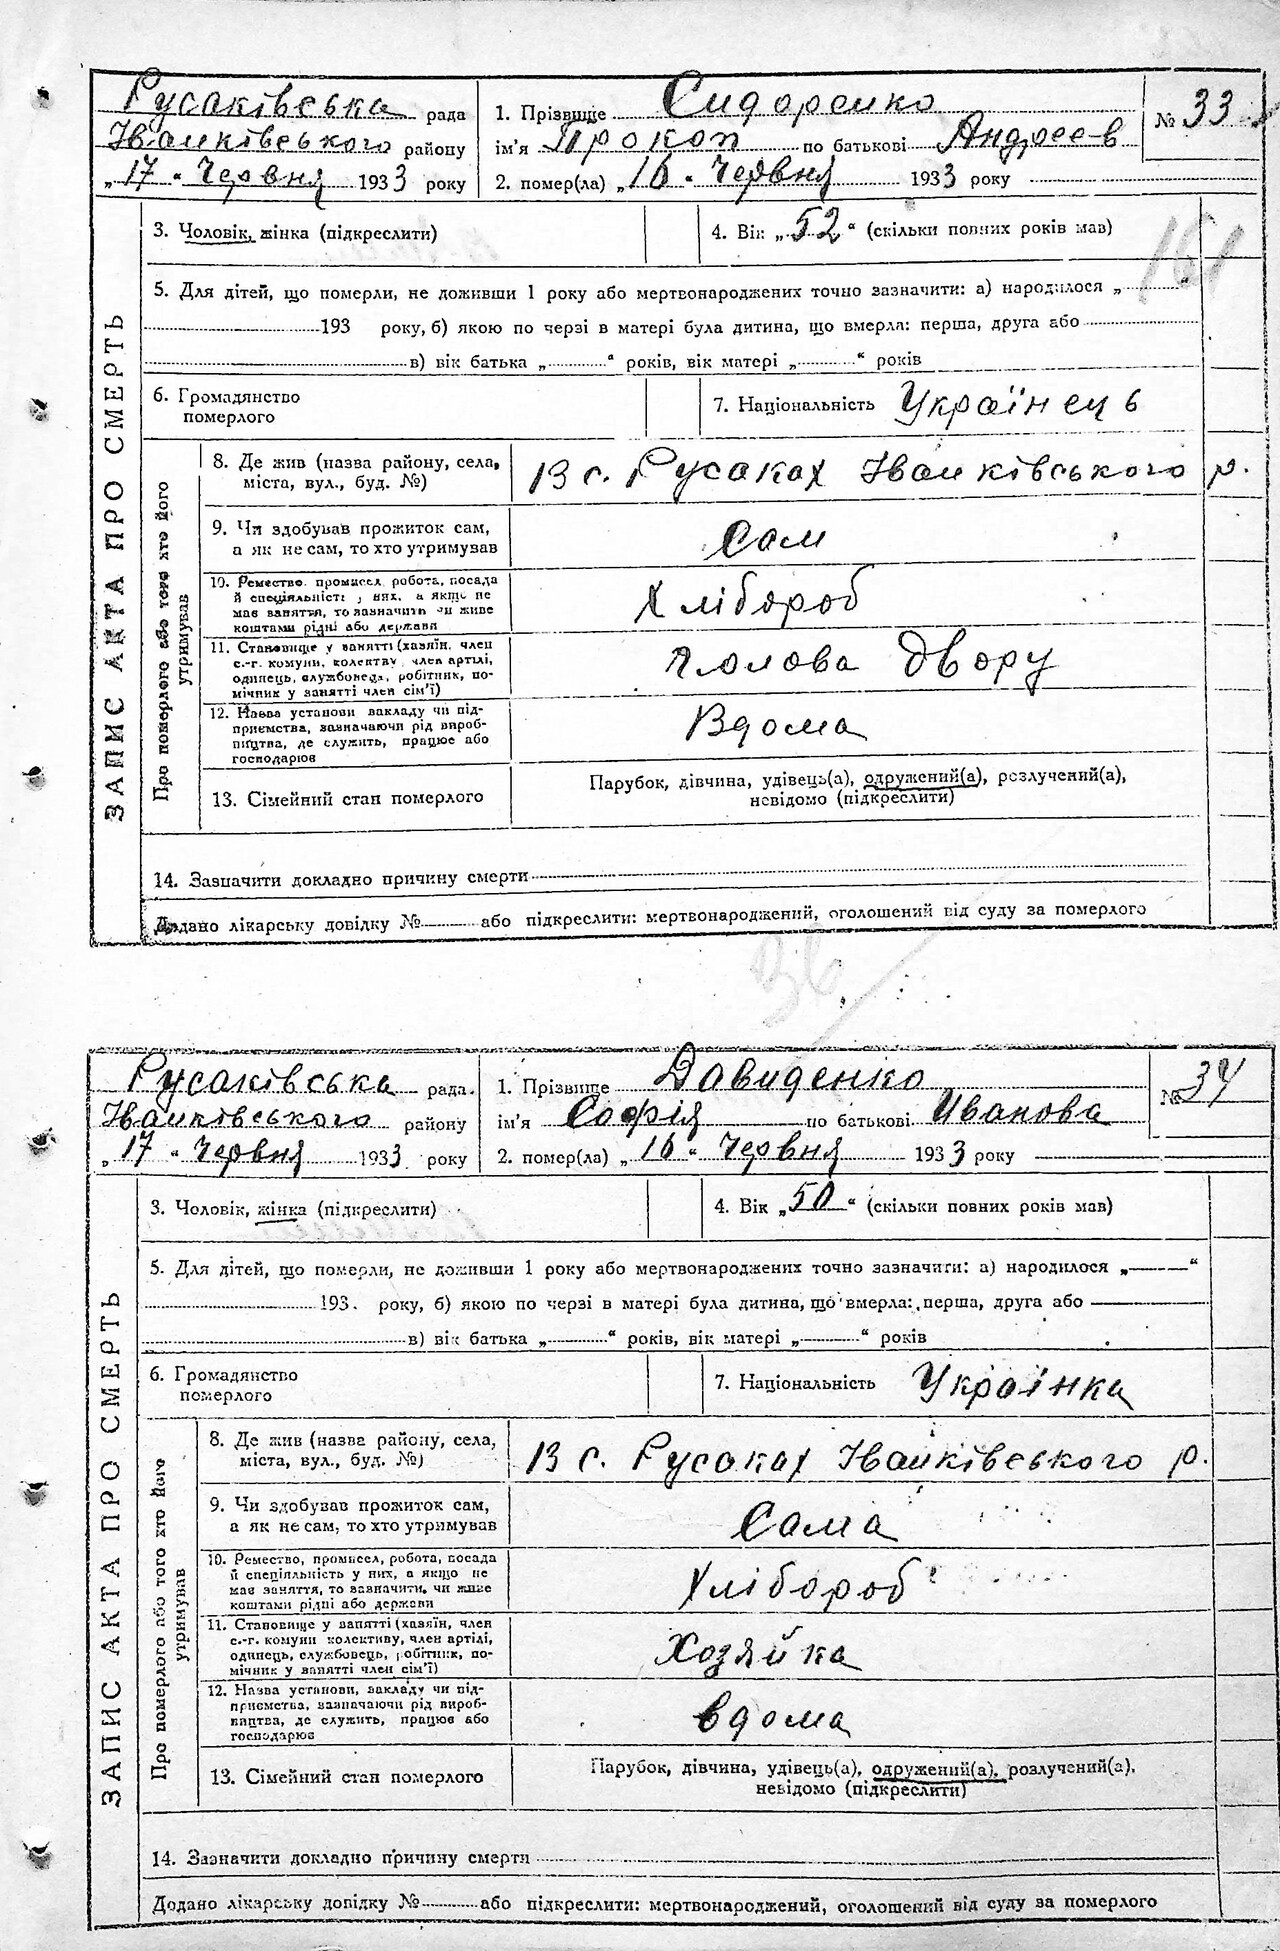 Русаківська рада
Іванківського району
„17" Червня 1933 року
1. Прізвище Сидоренко
ім'я Прокоп по батькові Андреев
2. помер(ла) „16" Червня 1933 року
№ 33
161
ЗАПИС АКТА ПРО СМЕРТЬ
3. Чоловік, жінка (підкреслити)
4. Вік „52" (скільки повних років мав)
5. Для дітей, що померли, не доживши 1 року або мертвонароджених точно зазначити: а) народилося „ "
193 року, б) якою по черзі в матері була дитина, що вмерла: перша, друга або
в) вік батька „ " років, вік матері „ " років
6. Громадянство
померлого
7. Національність Українець
Про померлого або того хто його
утримував
8. Де жив (назва району, села,
міста, вул., буд. №)
В с. Русаках Іванківського р.
9. Чи здобував прожиток сам,
а як не сам, то хто утримував
Сам
10. Ремество, промисел, робота, посада
й спеціяльність у них, а якщо не
має заняття, то зазначити чи живе
коштами рідні або держави
Хлібороб
11. Становище у занятті (хазяїн, член
с.-г. комуни, колективу, член артілі,
одинець, службовець, робітник, по-
мічник у занятті член сім'ї)
Голова двору
12. Назва установи закладу чи під-
приємства, зазначаючи рід вироб-
ництва, де служить, працює або
господарює
Вдома
13. Сімейний стан померлого
Парубок, дівчина, удівець(а), одружений(а), розлучений(а),
невідомо (підкреслити)
14. Зазначити докладно причину смерти
Додано лікарську довідку № або підкреслити: мертвонароджений, оголошений від суду за померлого
Русаківська рада.
Іванківського району
„17" Червня 1933 року
1. Прізвище Давиденко
ім'я Софія по батькові Иванова
2. помер(ла) „16" Червня 1933 року
№ 34
ЗАПИС АКТА ПРО СМЕРТЬ
3. Чоловік, жінка (підкреслити)
4. Вік „50" (скільки повних років мав)
5. Для дітей, що померли, не доживши 1 року або мертвонароджених точно зазначити: а) народилося „ "
193 року, б) якою по черзі в матері була дитина, що вмерла: перша, друга або
в) вік батька „ " років, вік матері „ " років
6. Громадянство
померлого
7. Національність Українка
Про померлого або того хто його
утримував
8. Де жив (назва району, села,
міста, вул., буд. №)
В с. Русаках Іванківського р.
9. Чи здобував прожиток сам,
а як не сам, то хто утримував
Сама
10. Ремество, промисел, робота, посада
й спеціяльність у них, а якщо не
має заняття, то зазначити, чи живе
коштами рідні або держави
Хлібороб
11. Становище у занятті (хазяїн, член
с.-г. комуни колективу, член артілі,
одинець, службовець, робітник, по-
мічник у занятті член сім'ї)
Хозяйка
12. Назва установи, закладу чи під-
приємства, зазначаючи рід вироб-
ництва, де служить, працює або
господарює
вдома
13. Сімейний стан померлого
Парубок, дівчина, удівець(а), одружений(а), розлучений(а),
невідомо (підкреслити)
14. Зазначити докладно причину смерти
Додано лікарську довідку № або підкреслити: мертвонароджений, оголошений від суду за померлого